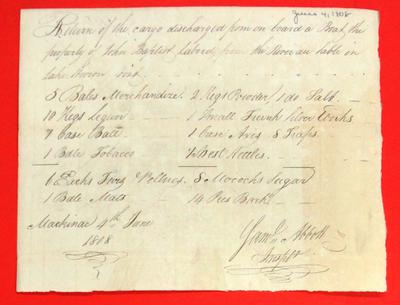 June 4, 1808
Return of the cargo discharged from on board a Boat, the
property of John Baptist Laborde from the River au Sable in
Lake Huron viz.
5 Bales Merchandize. 2 Kegs Powder / 1 do Salt.
10 Kegs Liquor 1 Small Trunk Silver Works
7 Case Ball. 1 Case Axes & Traps.
1 Bale Tobacco Kettles.
6 Packs Furs & Peltries. 8 Mococks Sugar
1 Bale Mats 14 Pces Bark.
Mackinac 4th June
1808
Saml. Abbott
Inspr.